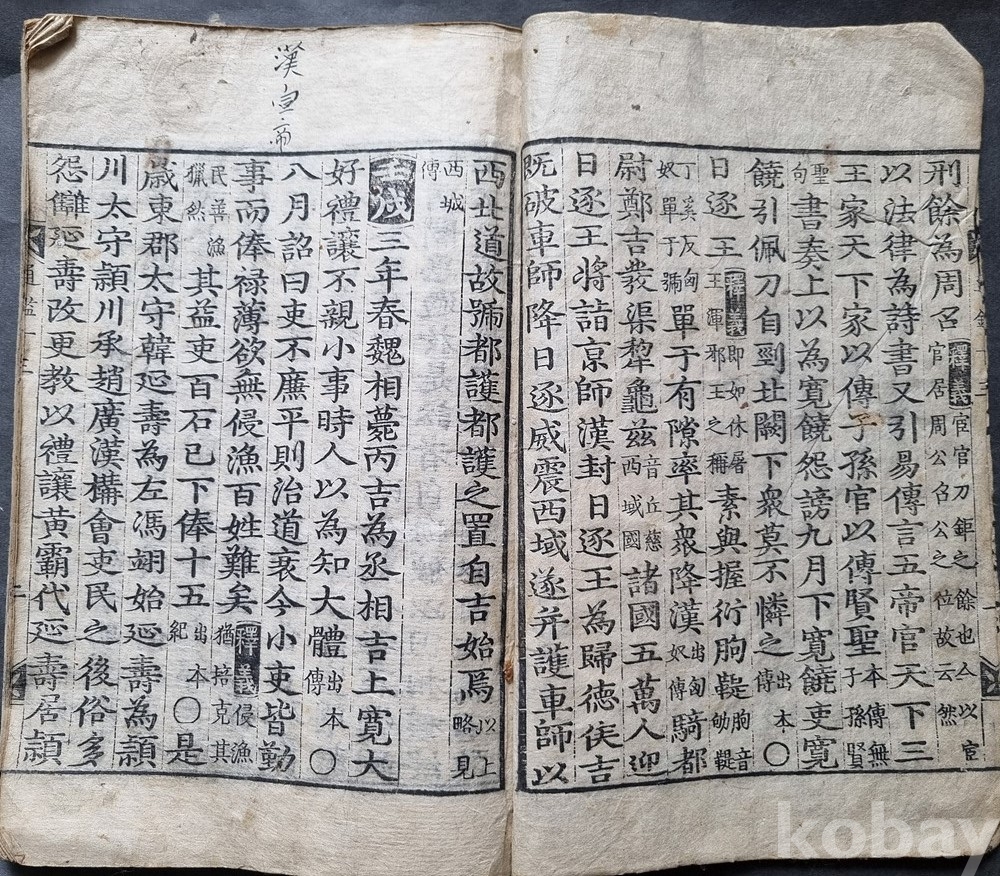 刑餘為周召釋義宦官刀鉅之餘也今以宦官居周公召公之位故云然
以法律為詩書又引易傳言五帝官天下三
王家天下家以傳子孫官以傳賢聖本傳無子孫賢
聖句書奏上以為寬饒怨謗九月下寬饒吏寬
饒引佩刀自剄北闕下衆莫不憐之出本傳〇
日逐王釋義即如休屠王渾邪王之稱素與握衍朐鞮朐音劬鞮
丁奚反匈奴單于號單于有隙率其衆降漢出匈奴傳騎都
尉鄭吉發渠犂龜茲音丘慈西域國諸國五萬人迎
日逐王將詣京師漢封日逐王為歸德侯吉
既破車師降日逐威震西域遂并護車師以
漢宣帝
西北道故號都護都護之置自吉始焉以上略見
西域傳
壬戌三年春魏相薨丙吉為丞相吉上寬大
好禮讓不親小事時人以為知大體出本傳〇
八月詔曰吏不廉平則治道衰今小吏皆勤
事而俸祿薄欲無侵漁百姓難矣釋義侵漁猶培克其
民善漁獵然其益吏百石已下俸十五出本紀〇是
歲東郡太守韓延壽為左馮翊始延壽為潁
川太守潁川承趙廣漢構會吏民之後俗多
怨讎延壽改更教以禮讓黃霸代延壽居潁
kobay